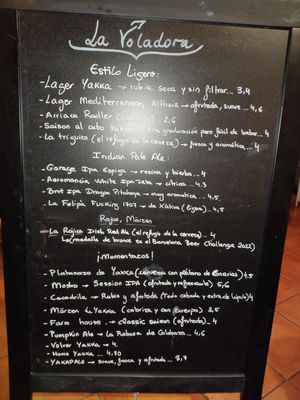 La Voladora
Estilo Ligero:
- Lager Yakka → rubia. seca y sin filtrar... 3,4
- Lager Mediterranean Althaia → afrutada, suave... 4,6
- Arriaca Radler 2,6
- Saison al cubo Yakka graduación pero fácil de beber... 4
- La trigueña (el refugio de la cerveza) → fresca y aromática... 4
Indian Pale Ale:
- Garage Ipa Espiga → resina y hierba.. 4
- Aeromancia White Ipa → cítrica .. 4.3
- Brut Ipa Dragon Pitahaya → muy aromática .. 4,5
- La Felipa Fucking 1707 → de Xàtiva (ligera).. 4,5
Rojas, Märzen
- La Rojica Irish Red Ale (el refugio de la cerveza).. 4
(medalla de bronce en el Barcelona Beer Challenge 2022)
¡Momentazos!
- Platanazo de Yakka (cerveza con plátano de Canarias) 4,5
- Mosto → Session IPA (afrutada y refrescante) 5,6
- Cocodrila → Rubia y afrutada (Todo cebada y extra de lúpulo) 4
- Märzen Yakka (cobriza y con cuerpo) 3,5
- Farm house → classic saison (afrutada).. 4
- Pumpkin Ale → La Rabosa de Calabaza .. 4,6
- Volver Yakka → 4.
- Homo Yakka ... 4.80
- YAKAPALO → suave, fresca y afrutada .. 3,7